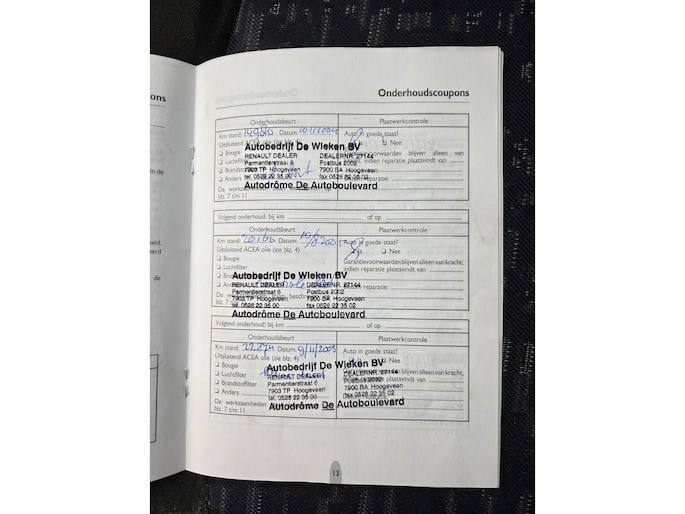 ons
Onderhoudscoupons
Onderhoudsbeurt Plaatwerkcontrole
Km stand: 14980 Datum: 10/11/2004 Auto in goede staat?
Uitsluitend ACEA olie (zie blz. 4) Nee
Bougie
Autobedrijf De Wieken BV
Garantievoorwaarden blijven alleen van kracht, indien reparatie plaatsvindt van
Luchtfilter
RENAULT DEALER DEALERNR. 27144
Parmentierstraat 6 Postbus 2002
Brandstoffilter
7903 TP Hoogeveen 7900 BA Hoogeveen
Anders
tel. 0528 22 35 00 fax 0528 22 35 02
reparatie:
De werkzaamheden
blz. 7 t/m 11
Autodrôme De Autoboulevard
Volgend onderhoud: bij km of op
Onderhoudsbeurt Plaatwerkcontrole
Km stand: Datum: Auto in goede staat?
Uitsluitend ACEA olie (zie blz. 4) Ja Nee
Bougie
Garantievoorwaarden blijven alleen van kracht,
Luchtfilter
indien reparatie plaatsvindt van
Autobedrijf De Wieken BV
RENAULT DEALER DEALERNR. 27144
Parmentierstraat 6 Postbus 2002
7903 TP Hoogeveen 7900 BA Hoogeveen
tel. 0528 22 35 00 fax 0528 22 35 02
Anders
reparatie:
De werkzaamheden
blz. 7 t/m 11
Autodrôme De Autoboulevard
Volgend onderhoud: bij km of op
Onderhoudsbeurt Plaatwerkcontrole
Km stand: 22274 Datum: 9/11/2005 Auto in goede staat?
Uitsluitend ACEA olie (zie blz. 4) Nee
Bougie
Autobedrijf De Wieken BV
Luchtfilter
RENAULT DEALER DEALERNR. 27144
Parmentierstraat 6 Postbus 2002
Brandstoffilter
7903 TP Hoogeveen 7900 BA Hoogeveen
Anders
tel. 0528 22 35 00 fax 0528 22 35 02
De werkzaamheden
blz. 7 t/m 11
Autodrôme De Autoboulevard
13